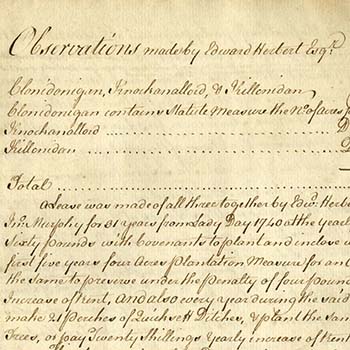 Observations made by Edward Herbert Esqr.
Clonidonigan, Knochanalloid, & Killonidan
Clonidonigan contains Statute Measure the No. of acres
Knochanalloid ........ D
Killonidan ........ D
Total ........
a Lease was made of all three together by Edwd. Herbe
Jno. Murphy for 31 years from Lady Day 1740 at the year
Sixty pounds with Covenants to plant and inclose w
first five years four Acres Plantation Measure for an
the Same to preserve under the penalty of four pound
Increase of rent, and also every year during the said
make 21 perches of Quicksett Ditches, & plant the Same
Trees, or pay Twenty Shillings Yearly increase of rent